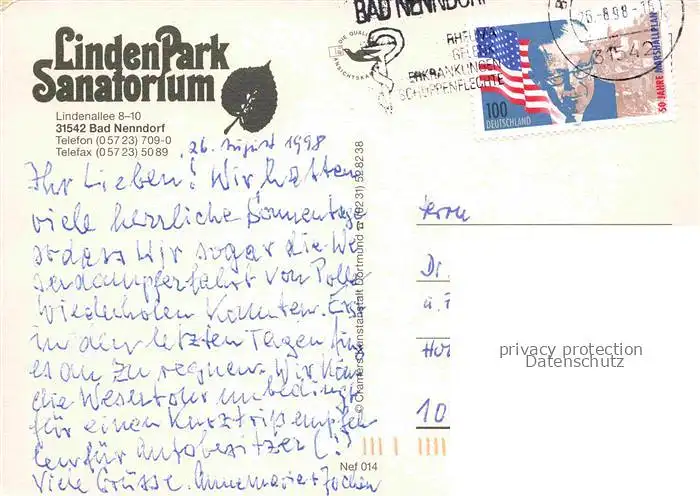 LindenPark
Sanatorium
Lindenallee 8–10
31542 Bad Nenndorf
Telefon (0 57 23) 709-0
Telefax (0 57 23) 50 89
BAD NENNDORF
RHEUMA
ERKRANKUNGEN
SCHUPPENFLECHTE
26.-8.98-15
31542
100
DEUTSCHLAND
50 JAHRE MARSHALLPLAN
26. August 1998
Ihr Lieben! Wir hatten
viele herrliche Sonnentage
sodass wir sogar die We
serdampferfahrt von Polle
wiederholen konnten. Erst
in den letzten Tagen fing
es an zu regnen. Wir kön
die Wesertour unbedingt
für einen Kurztrip empfeh
len für Autobesitzer (!)
Viele Grüsse. Annemarie + Jochen
© Cramers Kunstanstalt Dortmund ☎ (02 31) 52 82 38
Nef 014
Herrn
Dr.
u. F
10
privacy protection
Datenschutz